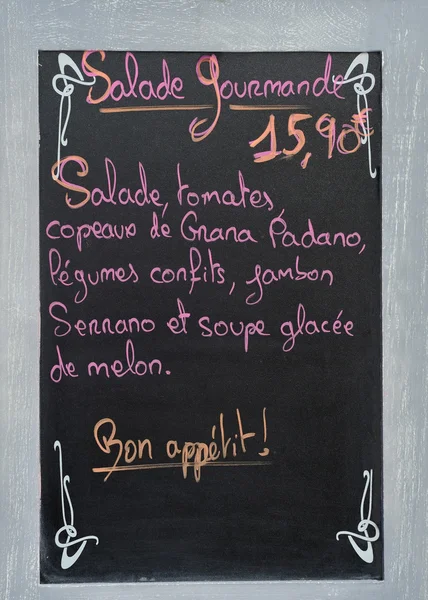 Salade Gourmande
15,90€
Salade, tomates,
copeaux de Grana Padano,
légumes confits, jambon
Serrano et soupe glacée
de melon.
Bon appétit !